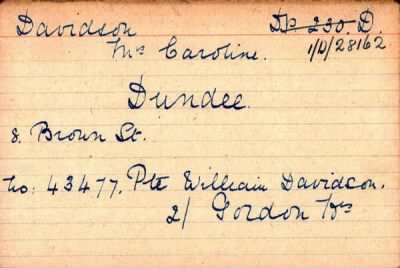 Davidson D/P 230. D.
Mrs Caroline. 1/D/28162
Dundee.
8. Brown St.
No: 43477. Pte William Davidson.
2/ Gordon Hrs